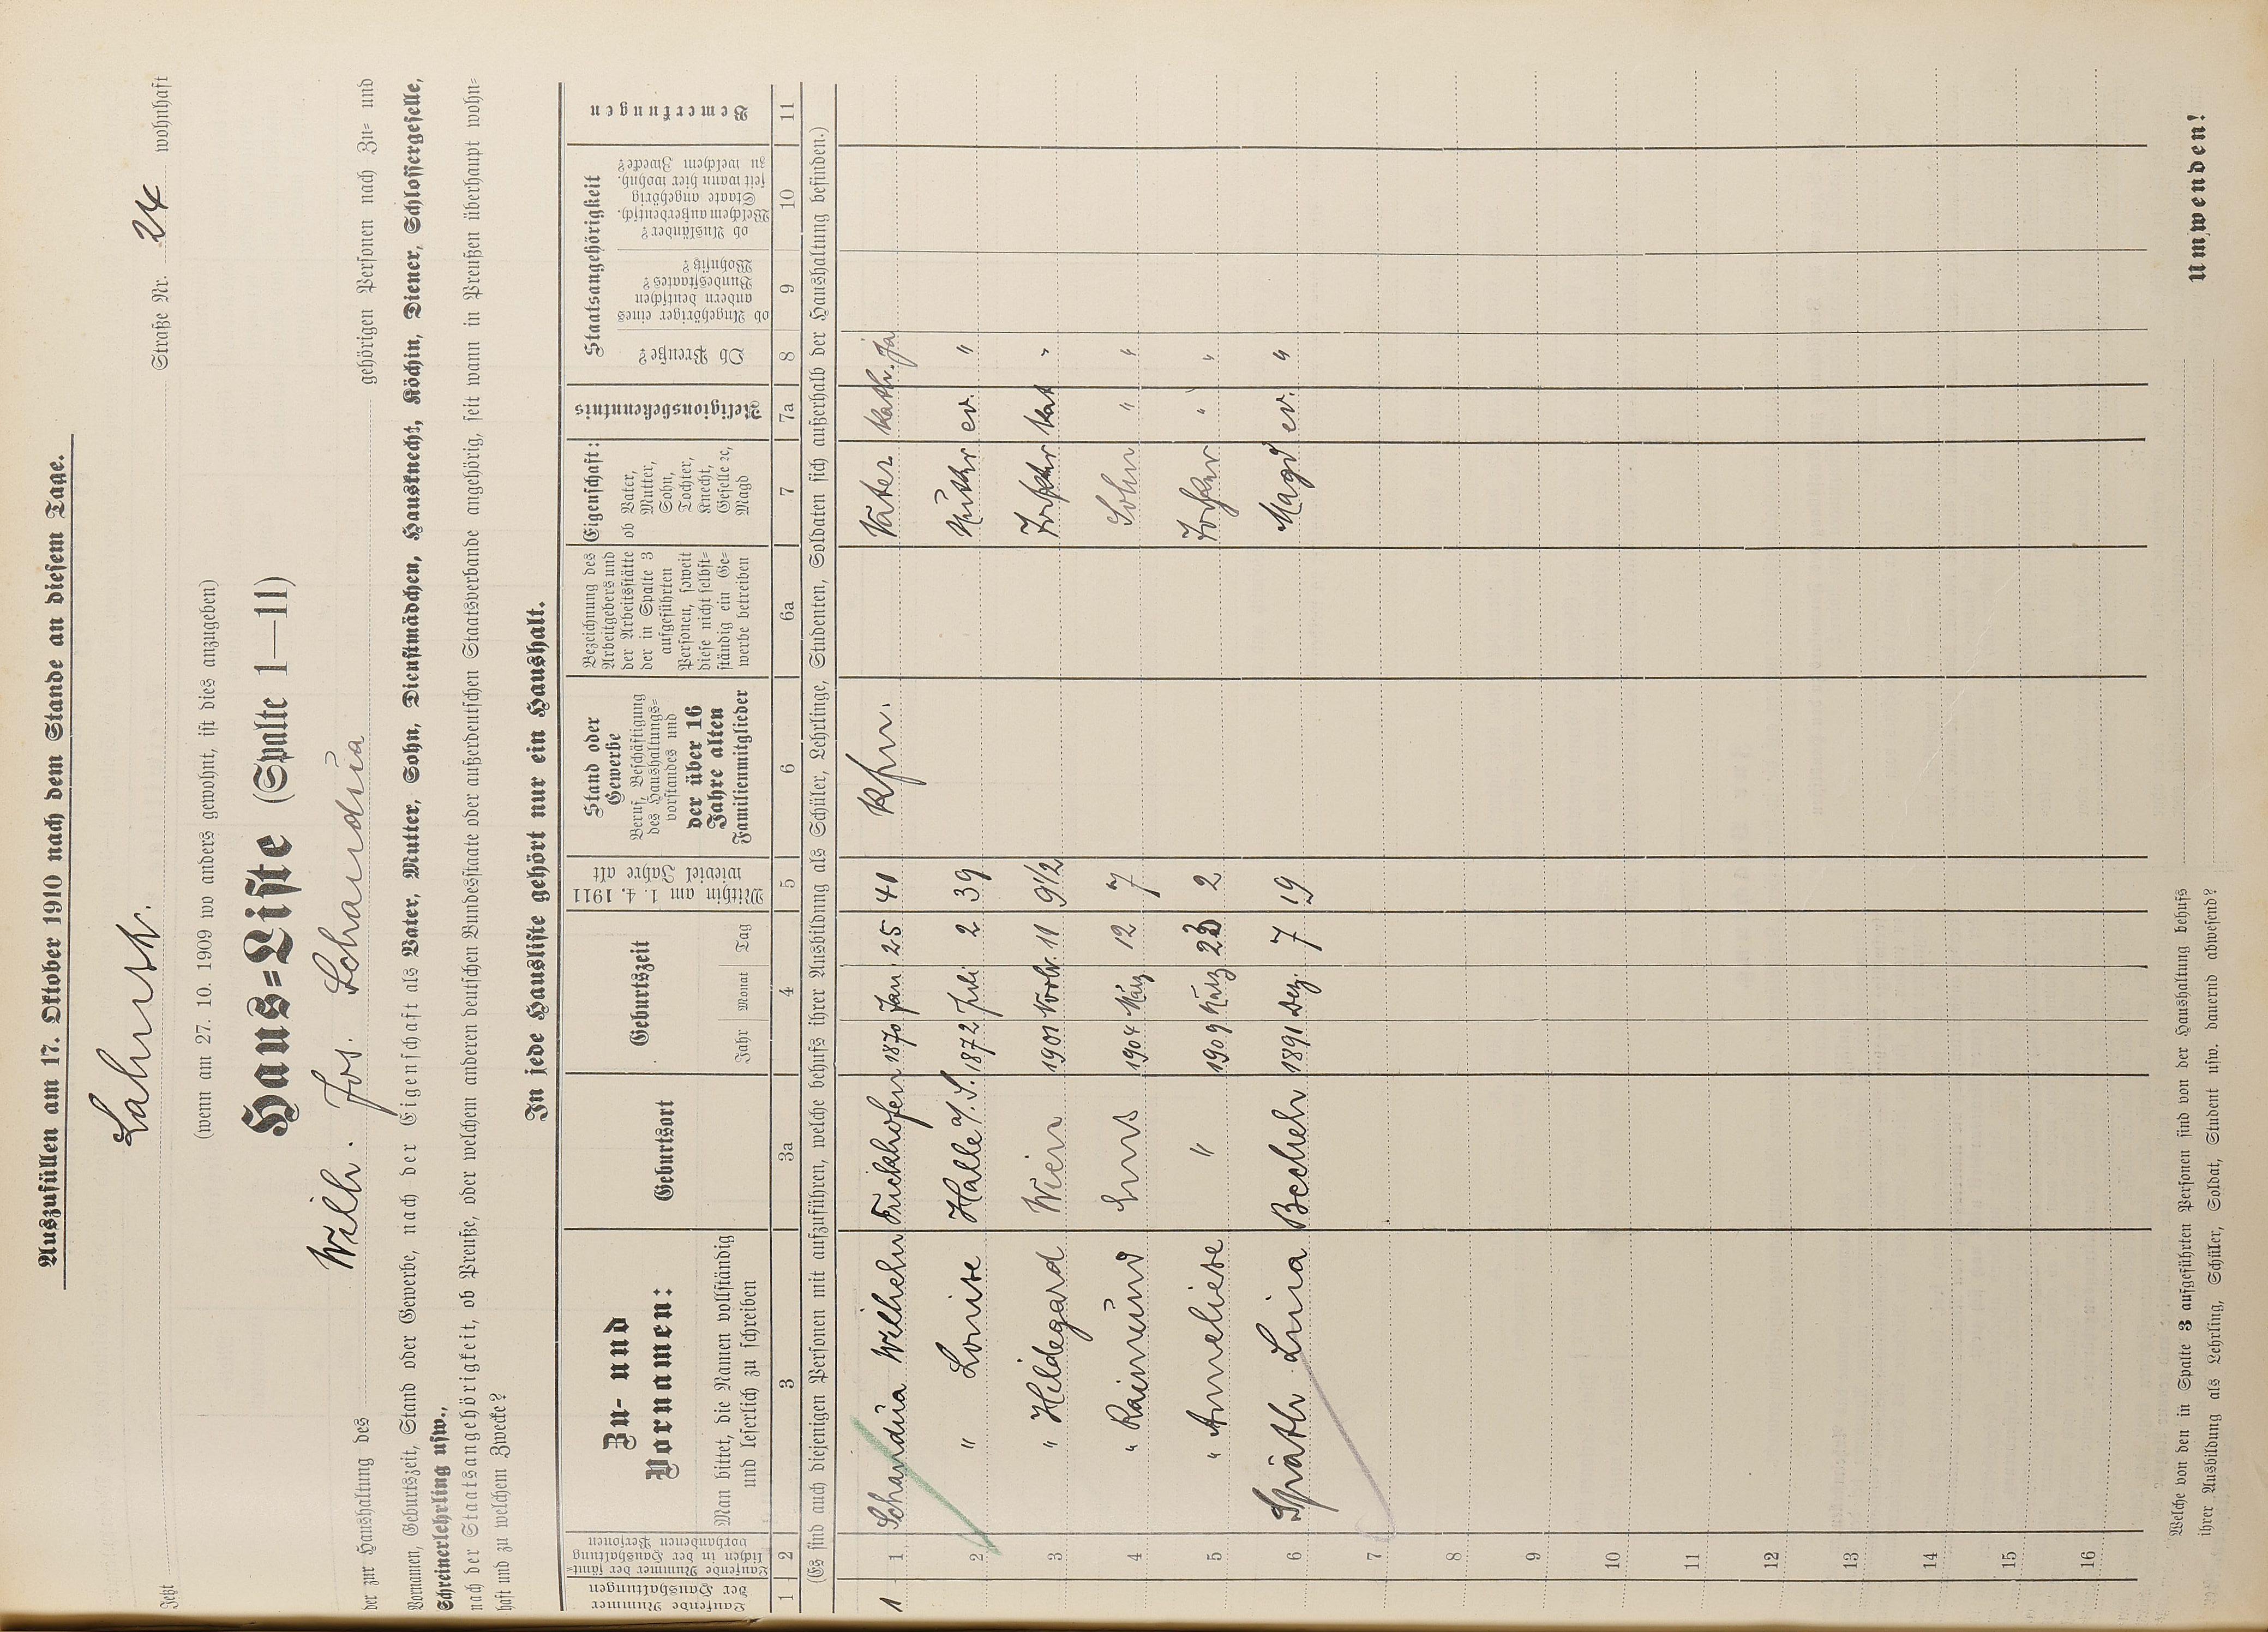 Auszufüllen am 17. Oktober 1910 nach dem Stande an diesem Tage.
Jetzt Lahnstr. Straße Nr. 24 wohnhaft
(wenn am 27. 10. 1909 wo anders gewohnt, ist dies anzugeben)
Haus=Liste (Spalte 1—11)
der zur Haushaltung des Wilh. Jos. Schandua gehörigen Personen nach Zu= und
Vornamen, Geburtszeit, Stand oder Gewerbe, nach der Eigenschaft als Vater, Mutter, Sohn, Dienstmädchen, Hausknecht, Köchin, Diener, Schlossergeselle,
Schreinerlehrling usw.,
nach der Staatsangehörigkeit, ob Preuße, oder welchem anderen deutschen Bundesstaate oder außerdeutschen Staatsverbande angehörig, seit wann in Preußen überhaupt wohn=
haft und zu welchem Zwecke?
In jede Hausliste gehört nur ein Haushalt.
Laufende Nummer
der Haushaltungen
Laufende Nummer der sämt=
lichen in der Haushaltung
vorhandenen Personen
Zu- und
Vornamen:
Man bittet, die Namen vollständig
und leserlich zu schreiben
Geburtsort
Geburtszeit
Jahr Monat Tag
Mithin am 1. 4. 1911
wieviel Jahre alt
Stand oder
Gewerbe
Beruf, Beschäftigung
des Haushaltungs=
vorstandes und
der über 16
Jahre alten
Familienmitglieder
Bezeichnung des
Arbeitgebers und
der Arbeitsstätte
der in Spalte 3
aufgeführten
Personen, soweit
diese nicht selbst=
ständig ein Ge=
werbe betreiben
Eigenschaft:
ob Vater,
Mutter,
Sohn,
Tochter,
Knecht,
Geselle ꝛc,
Magd
Religionsbekenntnis
Staatsangehörigkeit
Ob Preuße?
ob Angehöriger eines
andern deutschen
Bundesstaates?
Wohnsitz?
ob Ausländer?
Welchem außerdeutsch.
Staate angehörig
seit wann hier wohnh.
zu welchem Zwecke?
Bemerkungen
1 2 3 3a 4 5 6 6a 7 7a 8 9 10 11
(Es sind auch diejenigen Personen mit aufzuführen, welche behufs ihrer Ausbildung als Schüler, Lehrlinge, Studenten, Soldaten sich außerhalb der Haushaltung befinden.)
1 1 Schandua Wilhelm Frickhofen 1870 Jan 25 41 Kfm. Vater kath. Ja
2 " Louise Halle 1872 Juli 2 39 Mutter ev. "
3 " Hildegard Wien 1901 Novbr. 11 9½ Tochter kat "
4 " Raimund Ems 1904 März 12 7 Sohn " "
5 " Anneliese " 1909 März 2 Tochter " "
6 Späth Lina Becheln 1891 Dez. 7 19 Magd ev. "
7
8
9
10
11
12
13
14
15
16
Welche von den in Spalte 3 aufgeführten Personen sind von der Haushaltung behufs
ihrer Ausbildung als Lehrling, Schüler, Soldat, Student usw. dauernd abwesend?
Umwenden!